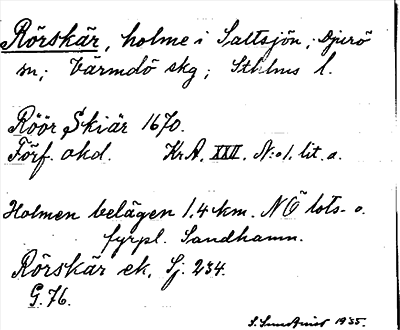 Rörskär, holme i Saltsjön; Djurö
sn; Värmdö skg; Sthlms l.
Röör Skiär 1670.
Förf. okd. KrA. XXVI. N:o 1. lit. a.
Holmen belägen 1,4 km. NÖ lots- o.
fyrpl. Sandhamn.
Rörskär ek. Sj. 234.
G. 76.
1935.